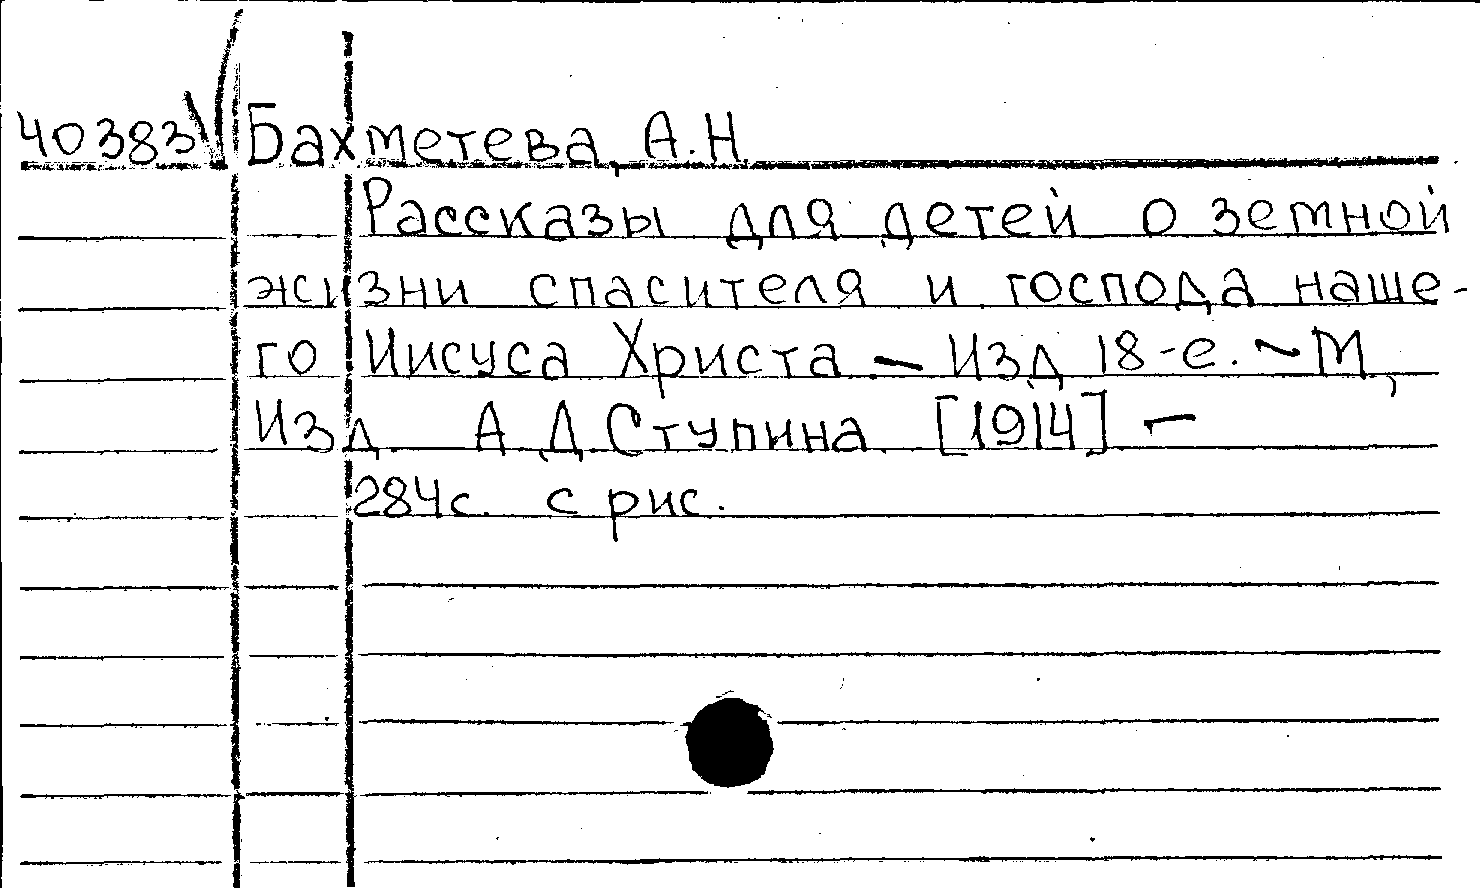 40383 Бахметева, А.Н.
Рассказы для детей о земной
жизни спасителя и господа наше-
го Иисуса Христа — Изд 18-е. ~ М,
Изд А Д Ступина [1914] —
284с. с рис.